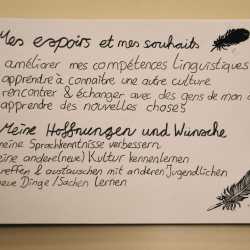 Mes espoirs et mes souhaits
améliorer mes compétences linguistiques
apprendre à connaître une autre culture
rencontrer & échanger avec des gens de mon
apprendre des nouvelles choses
Meine Hoffnungen und Wünsche
meine Sprachkenntnisse verbessern
eine andere (neue) Kultur kennenlernen
treffen & austauschen mit anderen Jugendlichen
neue Dinge/Sachen lernen